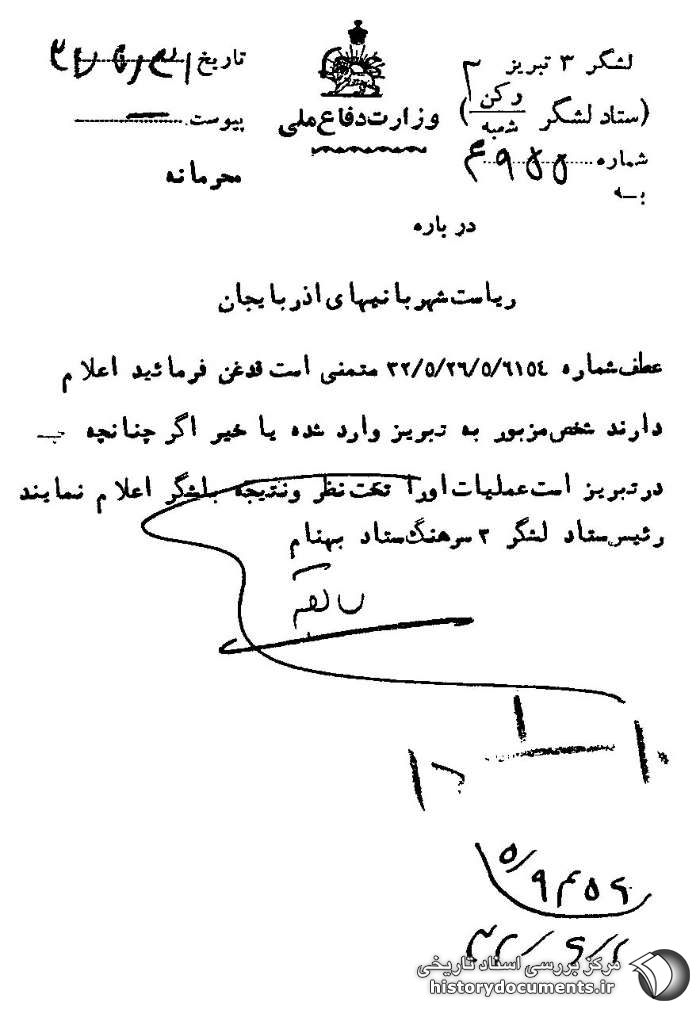 لشگر ۳ تبریز
(ستاد لشگر رکن ۲ شعبه)
وزارت دفاع ملی
تاریخ
پیوست
شماره
محرمانه
بـه
درباره
ریاست شهربانیهای اذربایجان
عطف شماره ۳۲/۵/۲۶/۵/۶۱۵۴ متمنی است قدغن فرمائید اعلام
دارند شخص مزبور به تبریز وارد شده یا خیر اگر چنانچه
در تبریز است عملیات اورا تحت نظر ونتیجه بلشگر اعلام نمایند
رئیس ستاد لشگر ۳ سرهنگ ستاد بهنام
مرکز بررسی اسناد تاریخی
historydocuments.ir